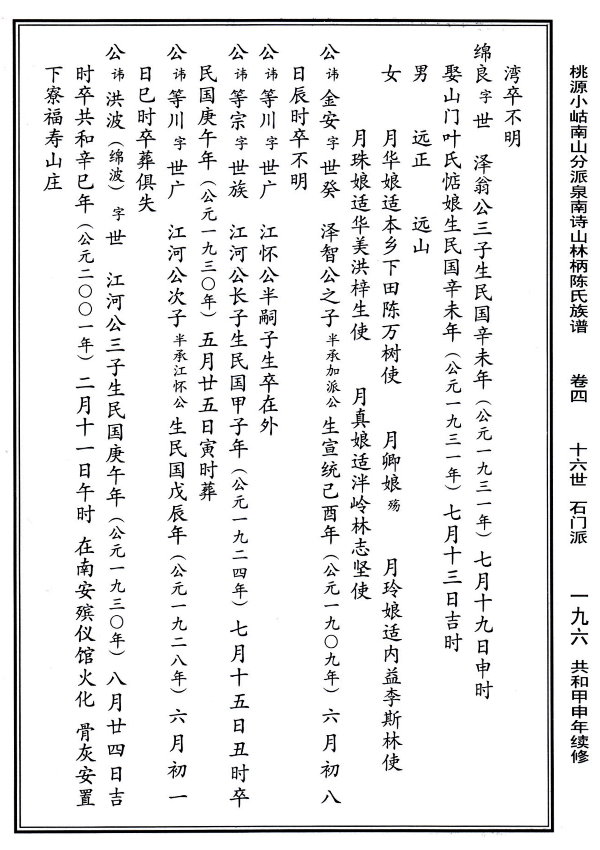 桃源小岵南山分派泉南诗山林柄陈氏族谱 卷四 十六世 石门派 一九六 共和甲申年续修
湾卒不明
绵良字世 泽翁公三子生民国辛未年（公元一九三一年）七月十九日申时
娶山门叶氏惦娘生民国辛未年（公元一九三一年）七月十三日吉时
男 远正 远山
女 月华娘适本乡下田陈万树使 月卿娘殇 月玲娘适内益李斯林使
月珠娘适华美洪梓生使 月真娘适泮岭林志坚使
公讳金安字世癸 泽智公之子半承加派公生宣统己酉年（公元一九〇九年）六月初八
日辰时卒不明
公讳等川字世广 江怀公半嗣子生卒在外
公讳等宗字世族 江河公长子生民国甲子年（公元一九二四年）七月十五日丑时卒
民国庚午年（公元一九三〇年）五月廿五日寅时葬
公讳等川字世广 江河公次子半承江怀公生民国戊辰年（公元一九二八年）六月初一
日巳时卒葬俱失
公讳洪波（绵波）字世 江河公三子生民国庚午年（公元一九三〇年）八月廿四日吉
时卒共和辛巳年（公元二〇〇一年）二月十一日午时 在南安殡仪馆火化 骨灰安置
下寮福寿山庄